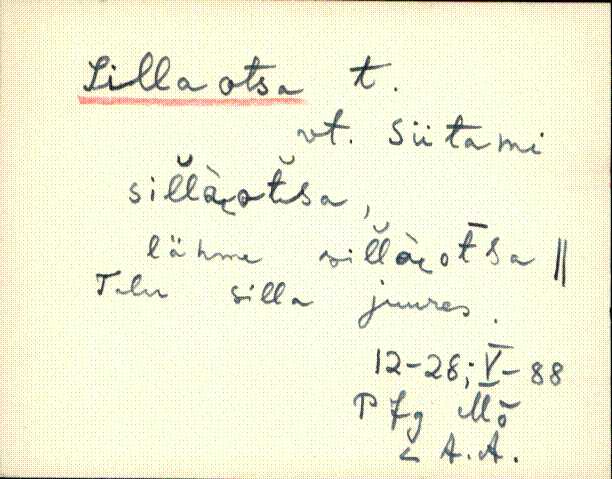 Sillaotsa t.
vt. Siitami
sil̆l̆à̬ot̆sa,
lähme sil̆l̆à̬ot̄sa ||
Talu silla juures.
12-28; V-88
P Jg Mõ
< A.A.